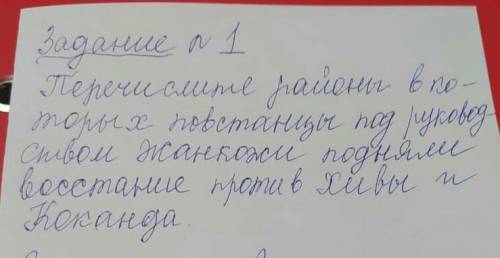 Задание N 1
Перечислите районы в ко-
торых повстанцы под руковод-
ством Жанкожи подняли
восстание против Хивы и
Коканда.